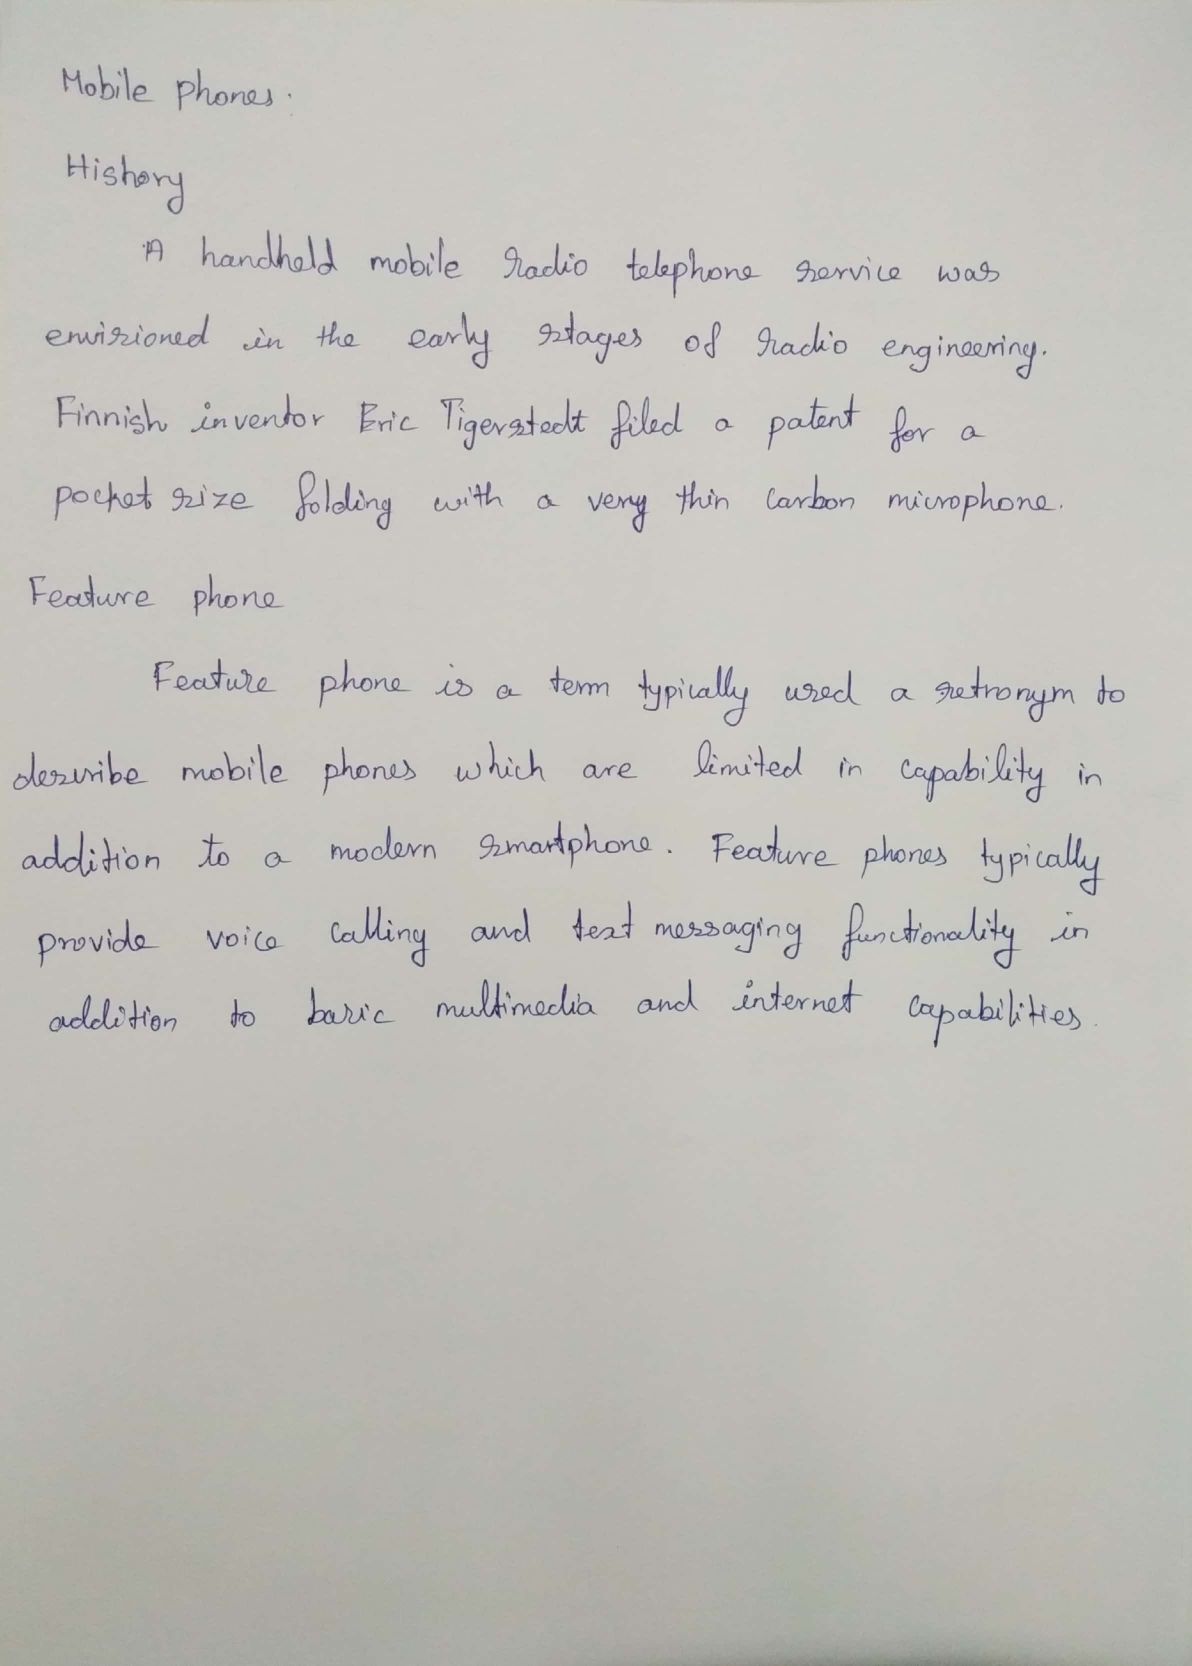 Mobile phones.
History
A handheld mobile radio telephone service was
envisioned in the early stages of radio engineering.
Finnish inventor Eric Tigerstedt filed a patent for a
pocket size folding with a very thin carbon microphone.
Feature phone
Feature phone is a term typically used a retronym to
describe mobile phones which are limited in capability in
addition to a modern smartphone. Feature phones typically
provide voice calling and text messaging functionality in
addition to basic multimedia and internet capabilities.